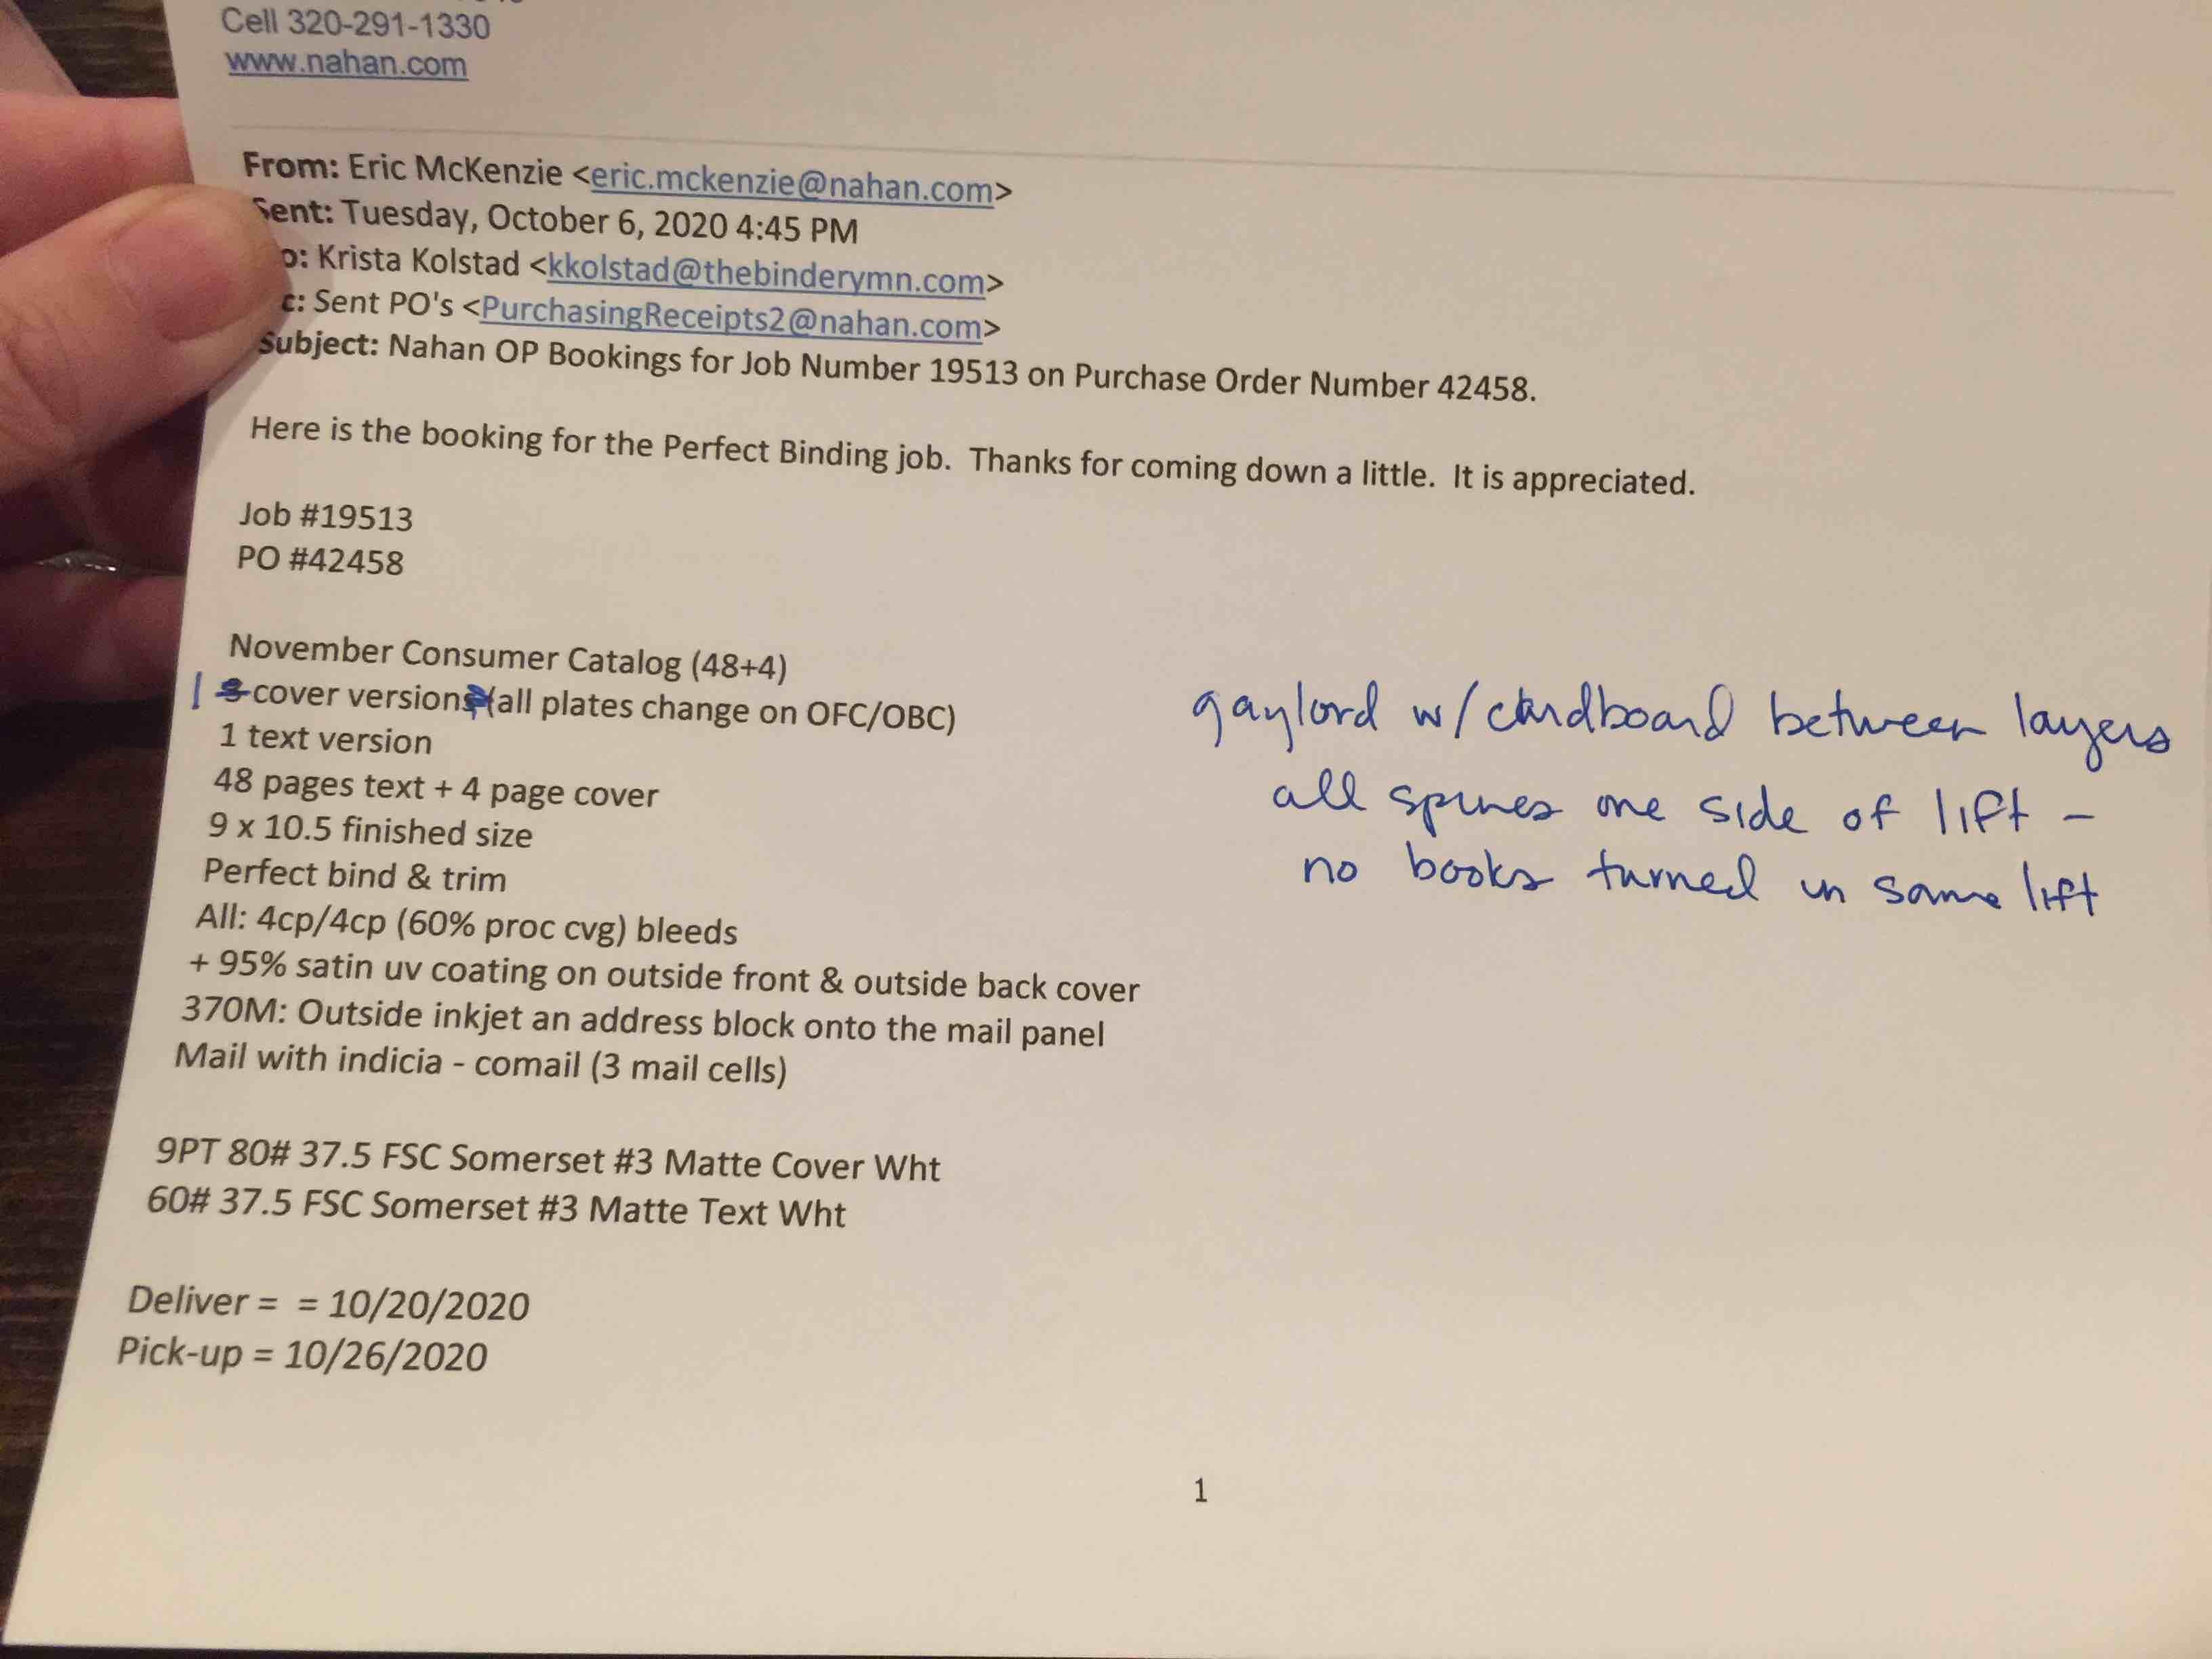 Cell 320-291-1330
www.nahan.com
From: Eric McKenzie <eric.mckenzie@nahan.com>
Sent: Tuesday, October 6, 2020 4:45 PM
o: Krista Kolstad <kkolstad@thebinderymn.com>
c: Sent PO's <PurchasingReceipts2@nahan.com>
Subject: Nahan OP Bookings for Job Number 19513 on Purchase Order Number 42458.
Here is the booking for the Perfect Binding job. Thanks for coming down a little. It is appreciated.
Job #19513
PO #42458
November Consumer Catalog (48+4)
1 3 cover versions (all plates change on OFC/OBC)
1 text version
48 pages text + 4 page cover
9 x 10.5 finished size
Perfect bind & trim
All: 4cp/4cp (60% proc cvg) bleeds
+ 95% satin uv coating on outside front & outside back cover
370M: Outside inkjet an address block onto the mail panel
Mail with indicia - comail (3 mail cells)
9PT 80# 37.5 FSC Somerset #3 Matte Cover Wht
60# 37.5 FSC Somerset #3 Matte Text Wht
Deliver = = 10/20/2020
Pick-up = 10/26/2020
gaylord w/cardboard between layers
all spines one side of lift -
no books turned in same lift
1